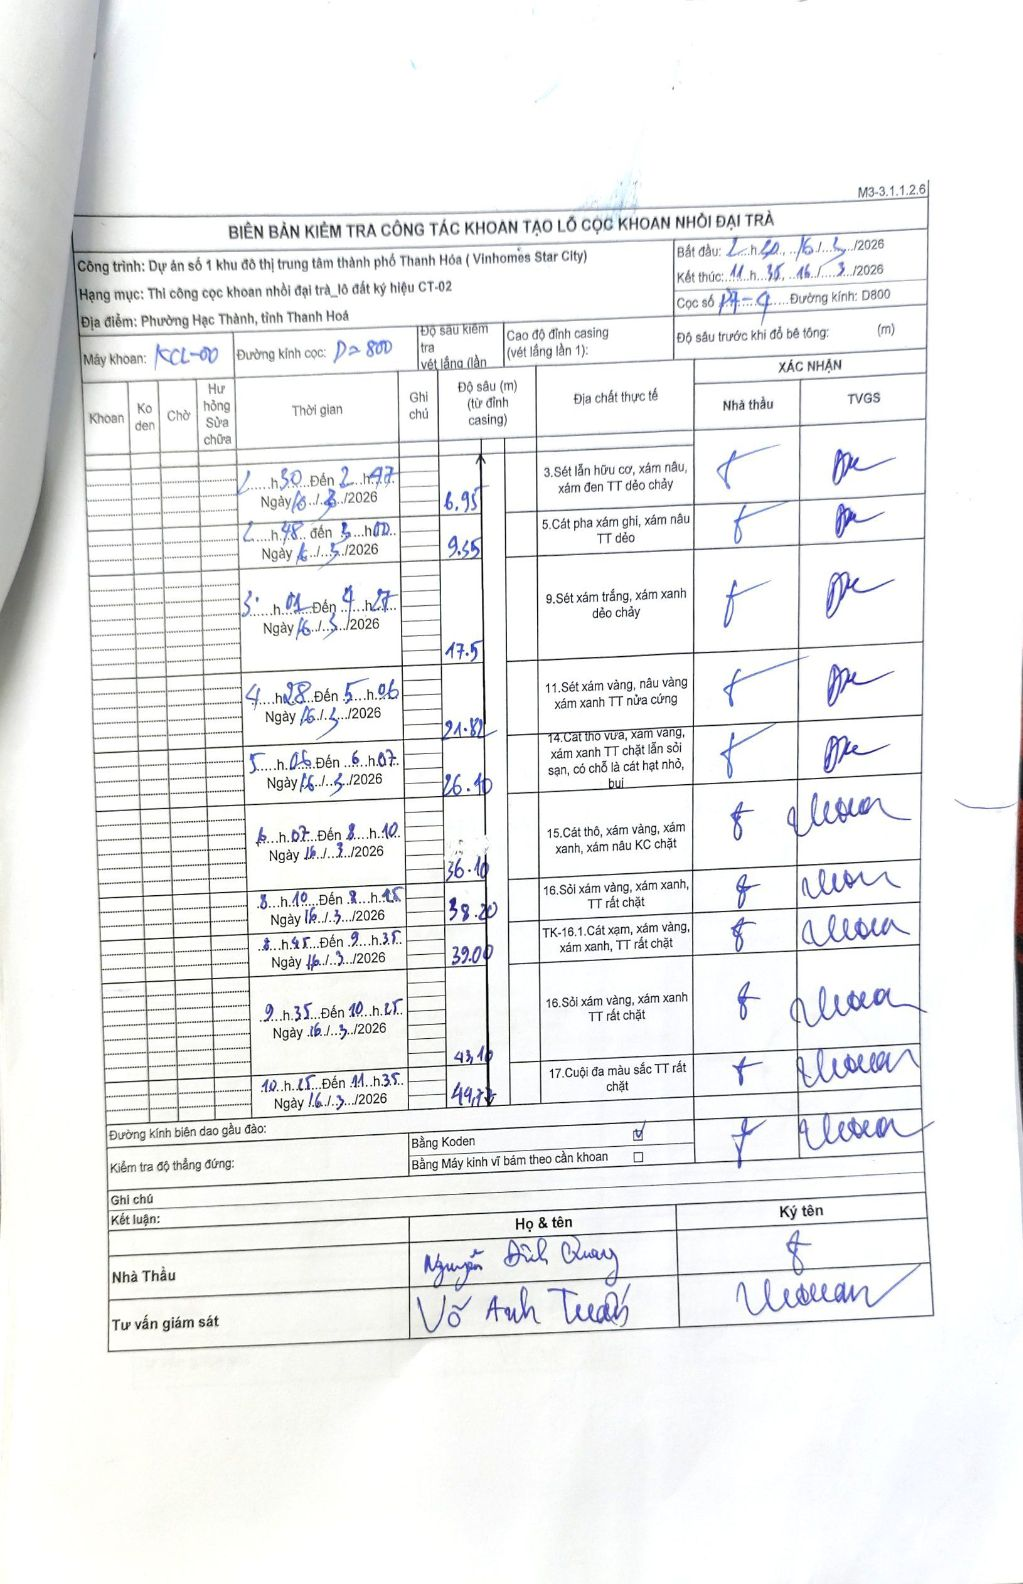 M3-3.1.1.2.6
BIÊN BẢN KIỂM TRA CÔNG TÁC KHOAN TẠO LỖ CỌC KHOAN NHỒI ĐẠI TRÀ
Công trình: Dự án số 1 khu đô thị trung tâm thành phố Thanh Hóa ( Vinhomes Star City)
Hạng mục: Thi công cọc khoan nhồi đại trà_lô đất ký hiệu CT-02
Địa điểm: Phường Hạc Thành, tỉnh Thanh Hoá
Bắt đầu: 2 h 30, 16/ 3 /2026
Kết thúc: 11 h 35, 16/ 3 /2026
Cọc số Đường kính: D800
Máy khoan: KCL-00
Đường kính cọc: D= 800
Độ sâu kiểm
tra
vét lắng (lần
Cao độ đỉnh casing
(vét lắng lần 1):
Độ sâu trước khi đổ bê tông: (m)
Khoan
Ko
den
Chờ
Hư
hỏng
Sửa
chữa
Thời gian
Ghi
chú
Độ sâu (m)
(từ đỉnh
casing)
Địa chất thực tế
XÁC NHẬN
Nhà thầu
TVGS
2 h 30 Đến 2 h 47
Ngày 16 / 3 /2026
6.95
3.Sét lẫn hữu cơ, xám nâu,
xám đen TT dẻo chảy
2 h 48 đến 3 h 00
Ngày 16 / 3 /2026
9.35
5.Cát pha xám ghi, xám nâu
TT dẻo
3 h 01 Đến 4 h 27
Ngày 16 / 3 /2026
17.5
9.Sét xám trắng, xám xanh
dẻo chảy
4 h 28 Đến 5 h 06
Ngày 16 / 3 /2026
21.82
11.Sét xám vàng, nâu vàng
xám xanh TT nửa cứng
5 h 06 Đến 6 h 07
Ngày 16 / 3 /2026
26.10
14.Cát thô vừa, xám vàng,
xám xanh TT chặt lẫn sỏi
sạn, có chỗ là cát hạt nhỏ,
bụi
6 h 07 Đến 8 h 10
Ngày 16 / 3 /2026
36.10
15.Cát thô, xám vàng, xám
xanh, xám nâu KC chặt
8 h 10 Đến 8 h 45
Ngày 16 / 3 /2026
38.20
16.Sỏi xám vàng, xám xanh,
TT rất chặt
8 h 45 Đến 9 h 35
Ngày 16 / 3 /2026
39.00
TK-16.1.Cát xạm, xám vàng,
xám xanh, TT rất chặt
9 h 35 Đến 10 h 25
Ngày 16 / 3 /2026
43,10
16.Sỏi xám vàng, xám xanh
TT rất chặt
10 h 25 Đến 11 h 35
Ngày 16 / 3 /2026
17.Cuội đa màu sắc TT rất
chặt
Đường kính biên dao gầu đào:
Kiểm tra độ thẳng đứng:
Bằng Koden ☑
Bằng Máy kinh vĩ bám theo cần khoan ☐
Ghi chú
Kết luận:
Họ & tên
Ký tên
Nhà Thầu
Nguyễn Đình Quay
Tư vấn giám sát
Võ Anh Tuấn